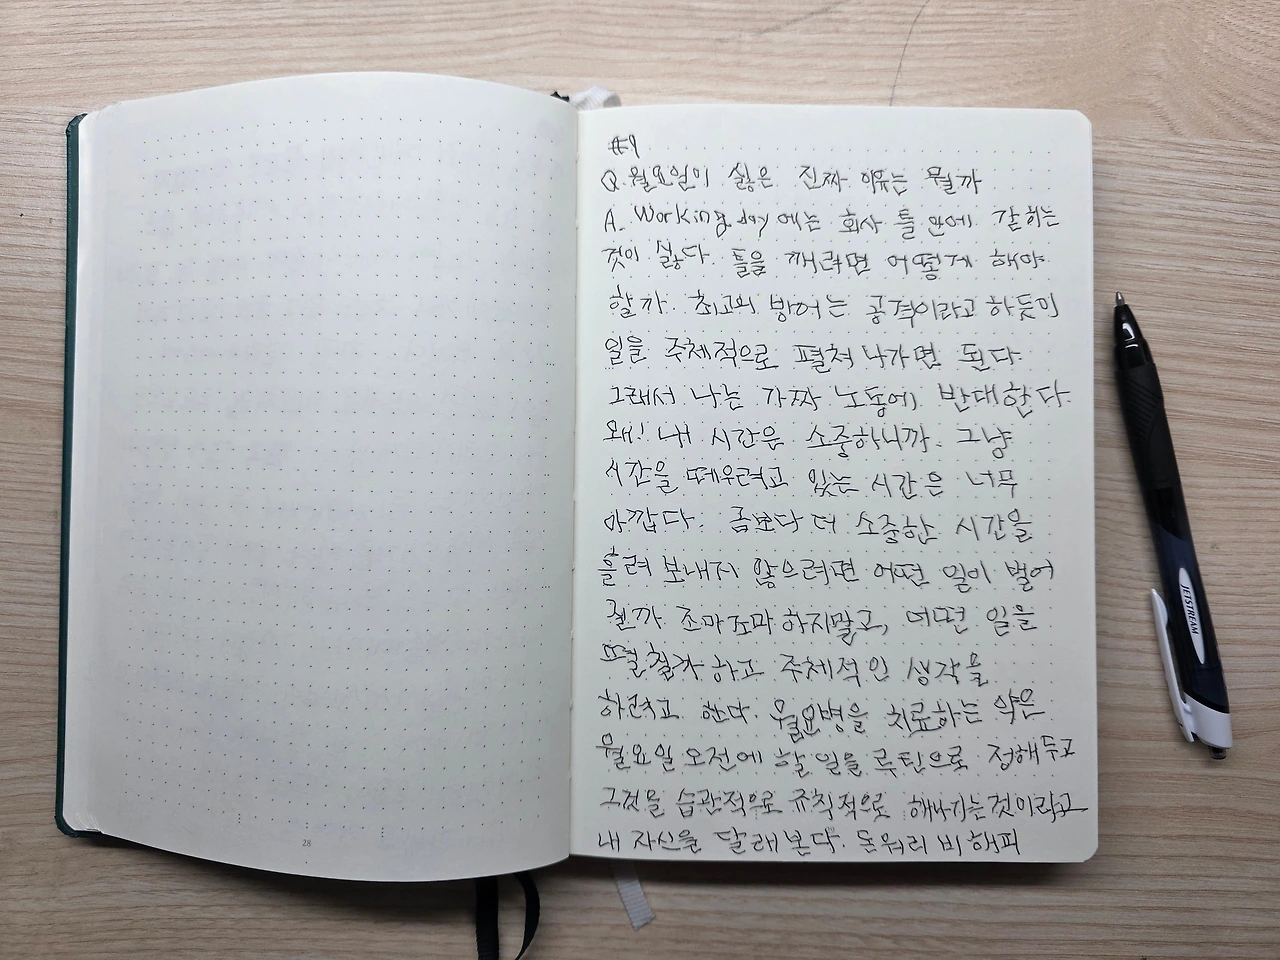 #9
Q. 월요일이 싫은 진짜 이유는 뭘까
A. Working day 에는 회사 틀 안에 갇히는
것이 싫다. 틀을 깨려면 어떻게 해야
할까. 최고의 방어는 공격이라고 하듯이
일을 주체적으로 펼쳐 나가면 된다
그래서 나는 가짜 노동에 반대한다.
왜! 내 시간은 소중하니까. 그냥
시간을 떼우려고 있는 시간은 너무
아깝다. 금보다 더 소중한 시간을
흘려 보내지 않으려면 어떤 일이 벌어
질까 조마조마 하지말고, 어떤 일을
떨칠까 하고 주체적인 생각을
하려고 한다. 월요병을 치료하는 약은
월요일 오전에 할 일을 루틴으로 정해두고
그것을 습관적으로 규칙적으로 해나가는 것이라고
내 자신을 달래본다. 돈워리 비 해피
28
JETSTREAM